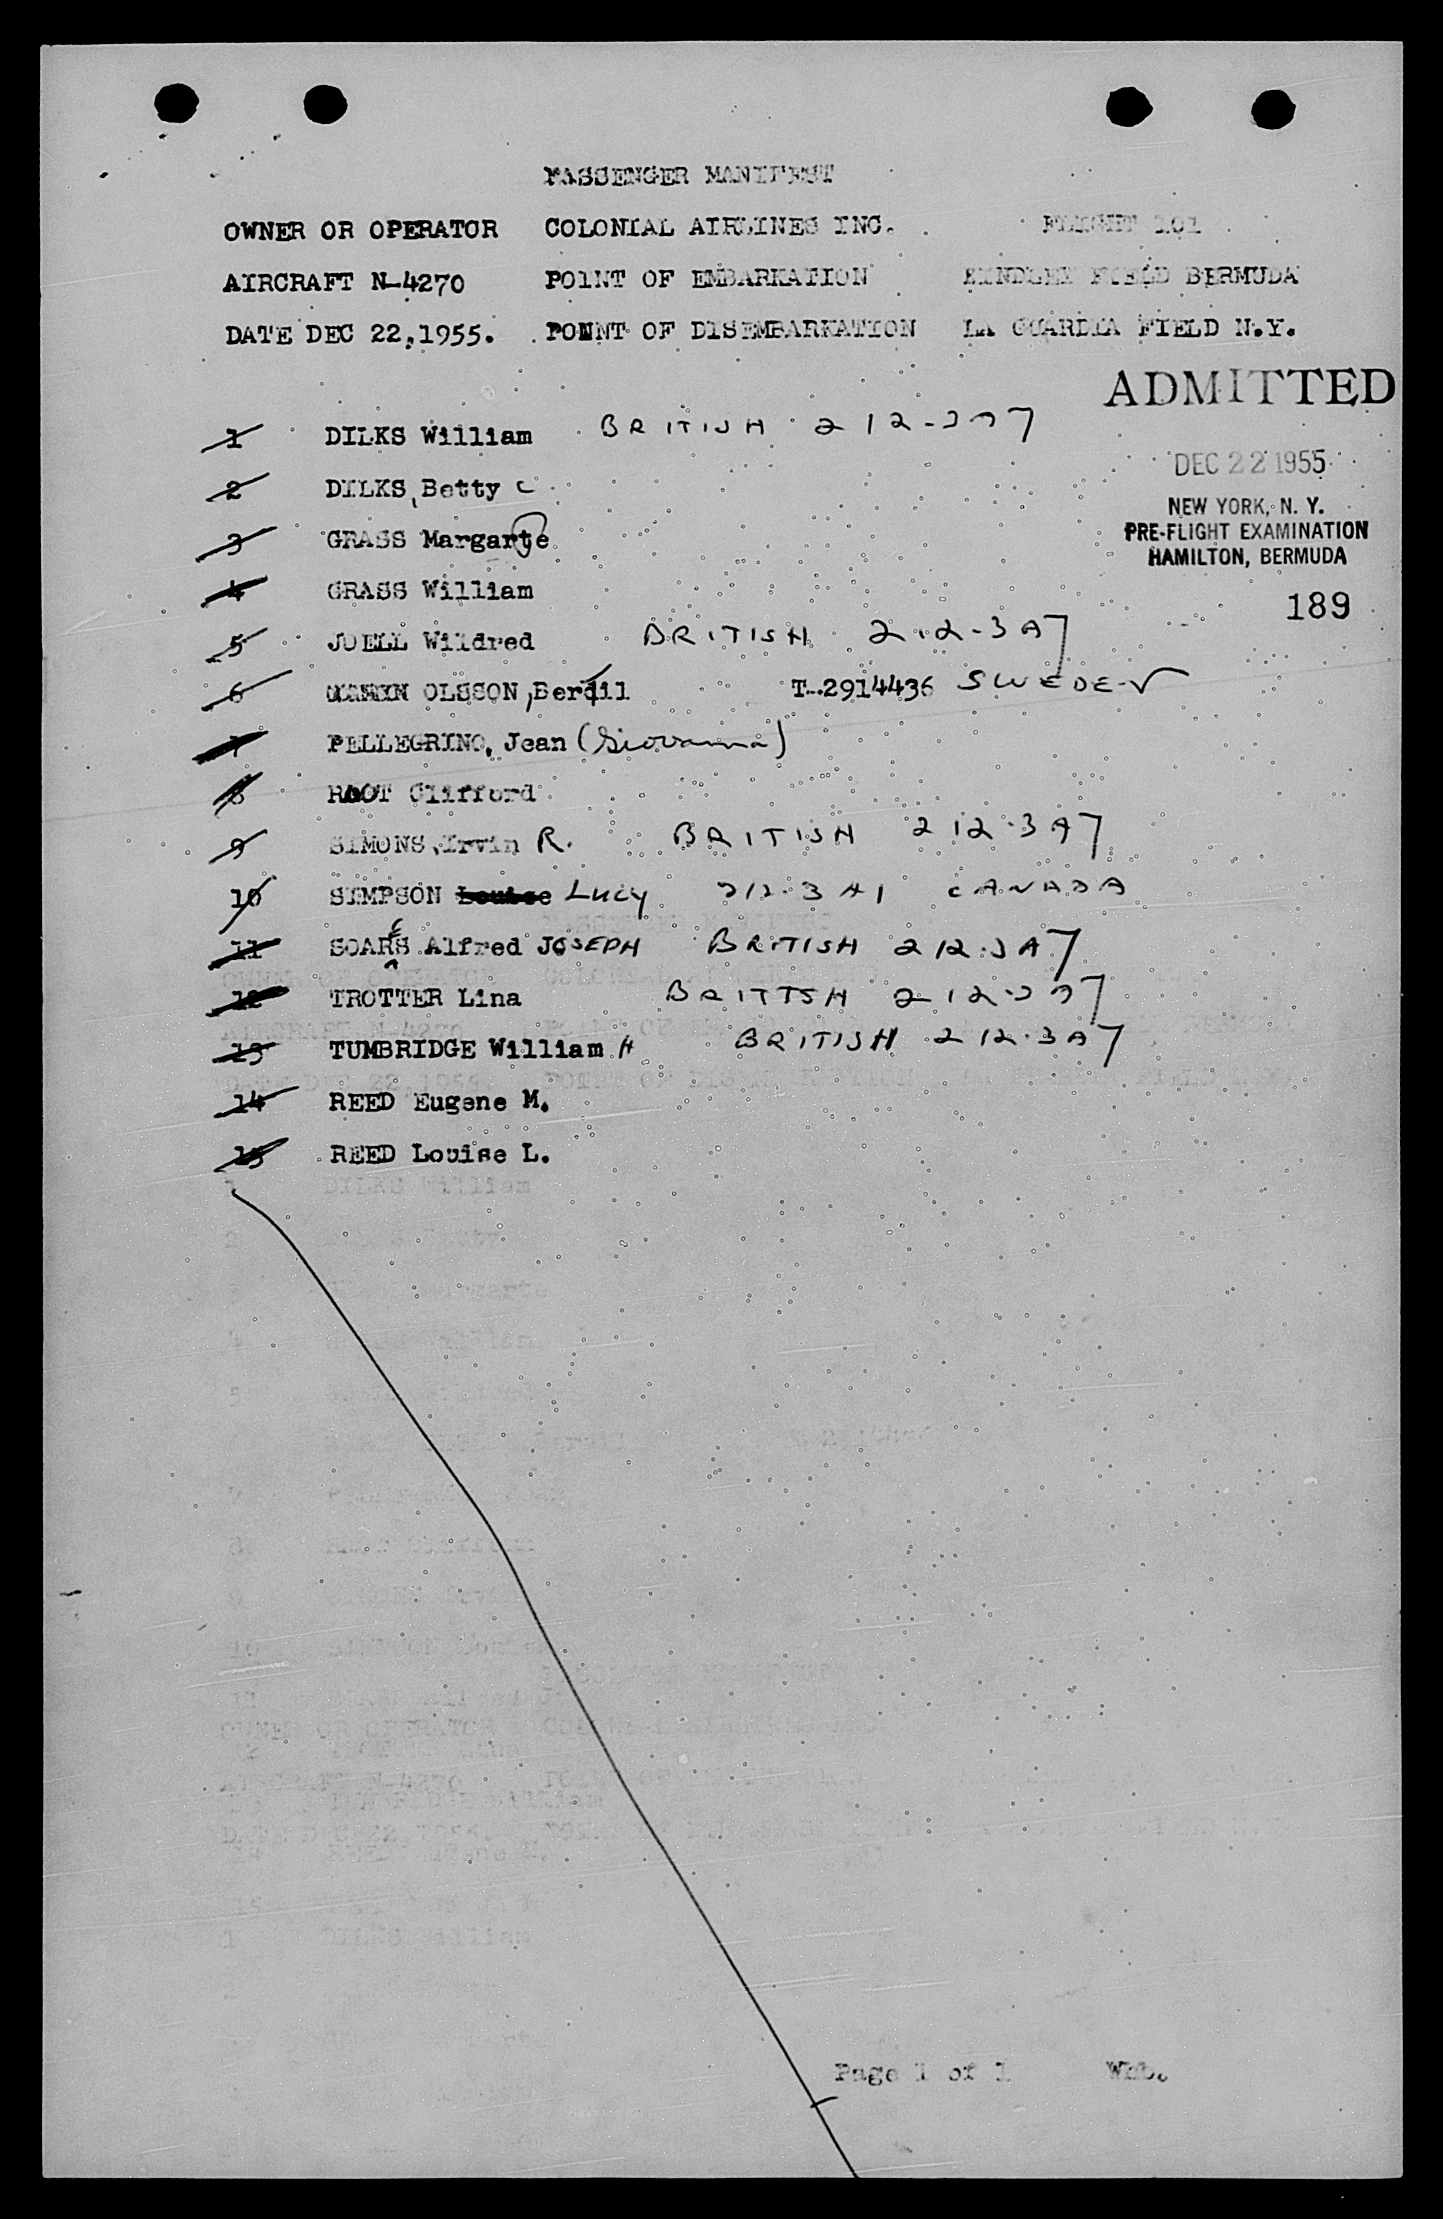 PASSENGER MANIFEST
OWNER OR OPERATOR COLONIAL AIRLINES INC. FLIGHT 101
AIRCRAFT N-4270 POINT OF EMBARKATION KINDLEY FIELD BERMUDA
DATE DEC 22,1955. POINT OF DISEMBARKATION LA GUARDIA FIELD N.Y.
ADMITTED
1 DILKS William BRITISH 212-3A7
DEC 22 1955
2 DILKS, Betty C
NEW YORK, N. Y.
PRE-FLIGHT EXAMINATION
3 GRASS Margarte
HAMILTON, BERMUDA
4 GRASS William
189
5 JOELL Wildred BRITISH 212-3A7
6 OLSSON, Bertil T-2914436 SWEDEN
7 PELLEGRINO, Jean (Giovanna)
8 ROOT Clifford
9 SIMONS, Irvin R. BRITISH 212-3A7
10 SIMPSON Louise Lucy 212-3A1 CANADA
11 SOARES Alfred JOSEPH BRITISH 212-3A7
12 TROTTER Lina BRITISH 212-3A7
13 TUMBRIDGE William H BRITISH 212-3A7
14 REED Eugene M.
15 REED Louise L.
Page 1 of 1